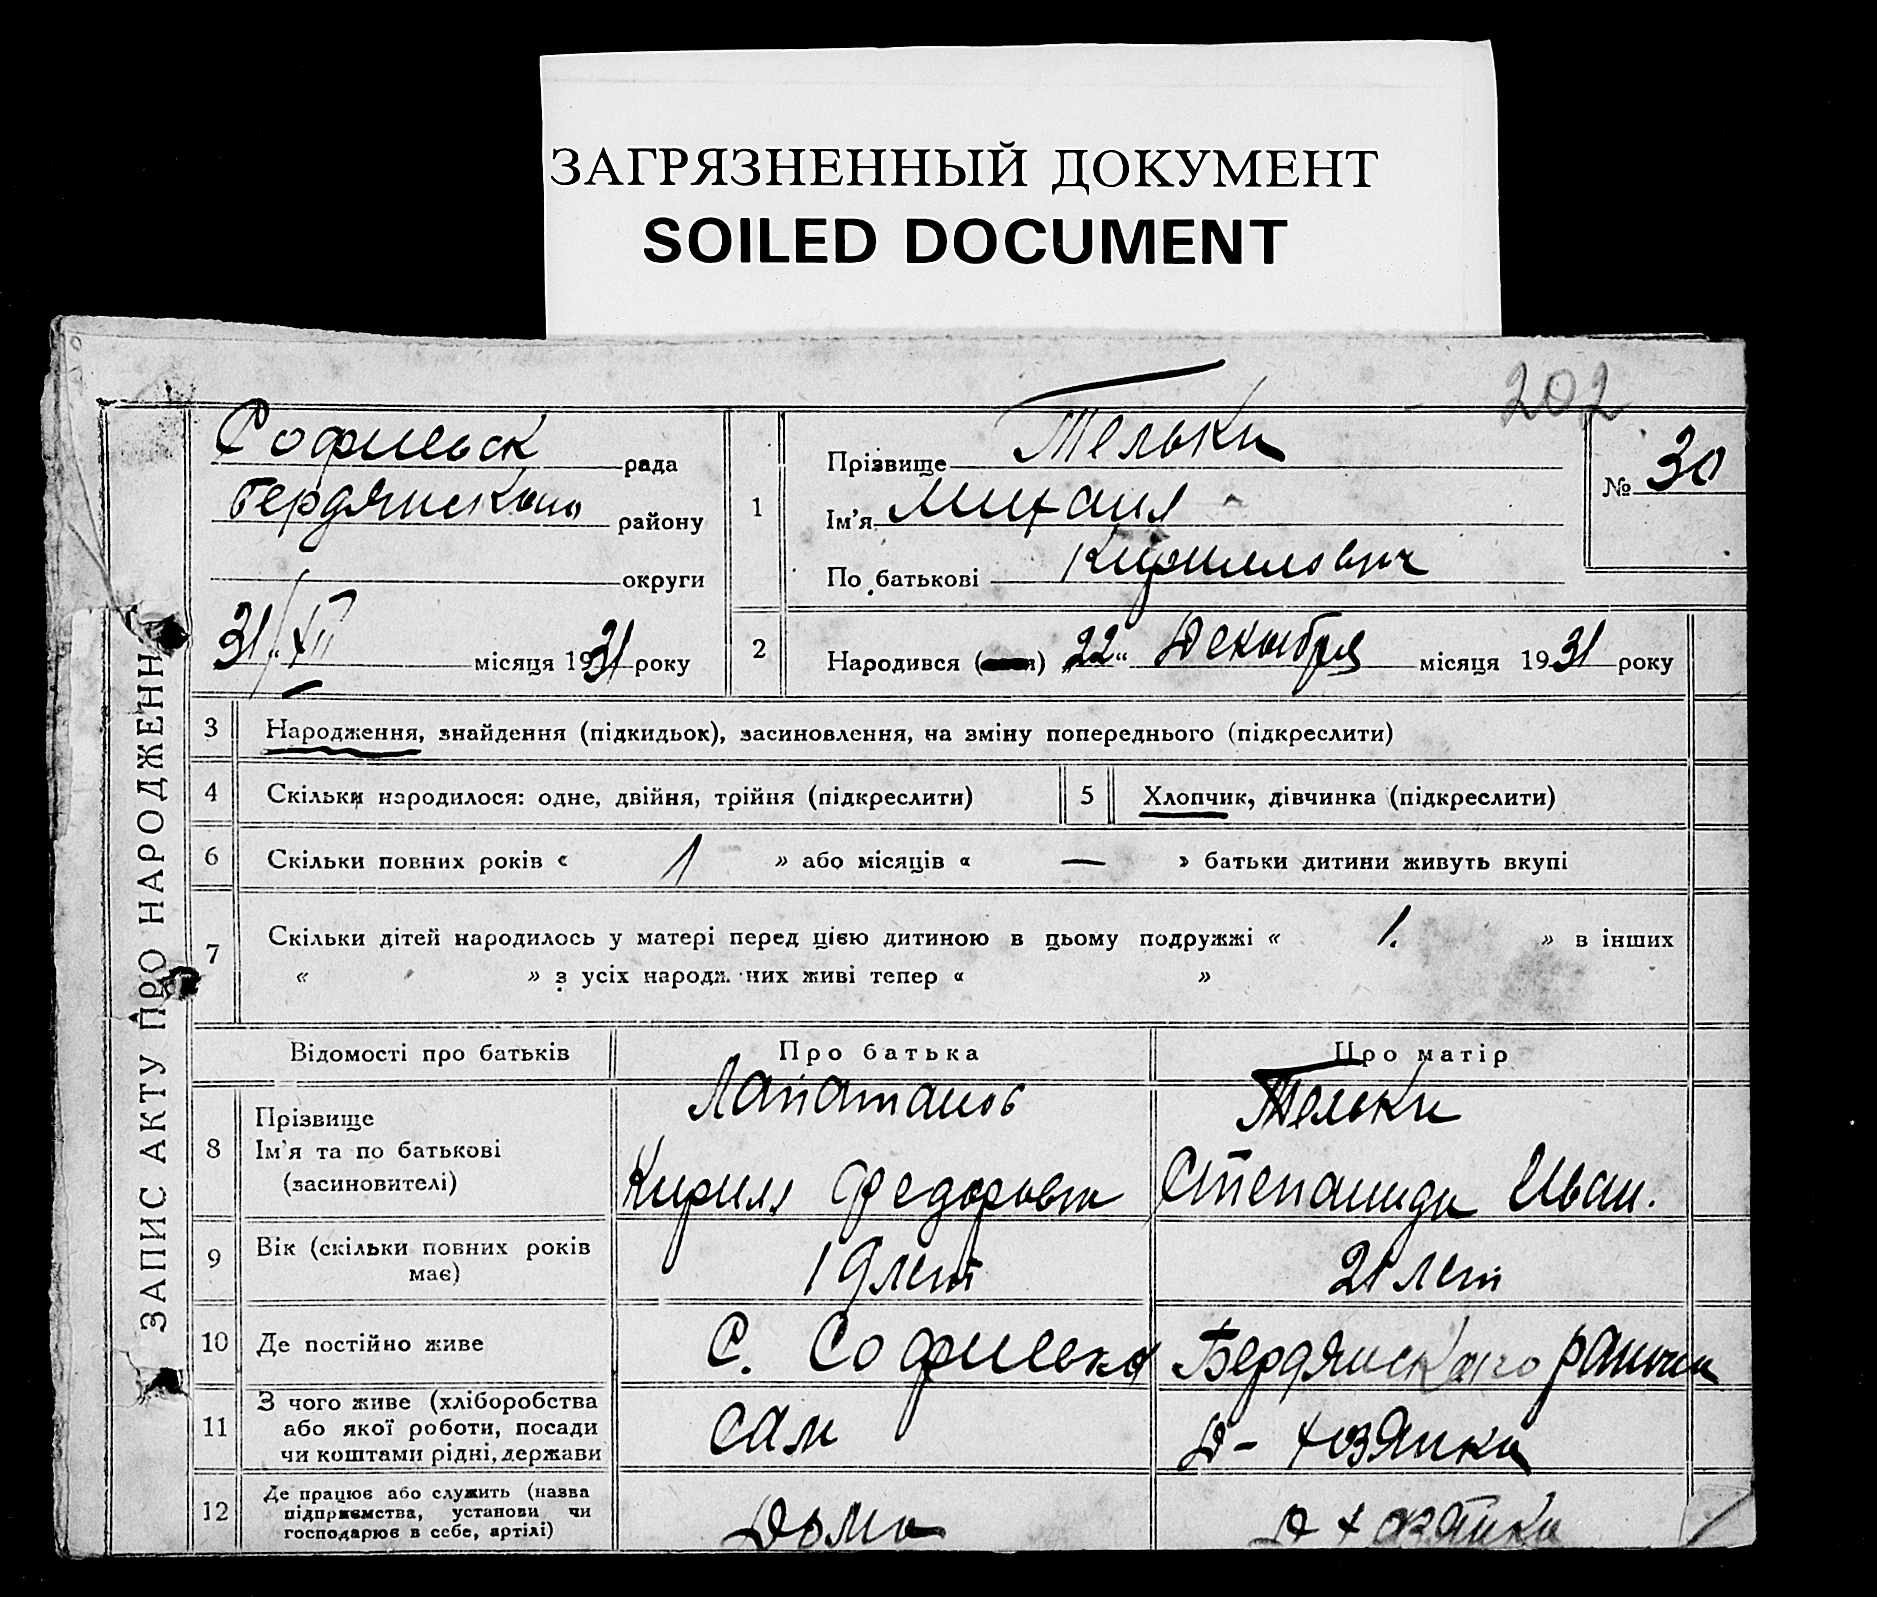 ЗАГРЯЗНЕННЫЙ ДОКУМЕНТ
SOILED DOCUMENT
202
ЗАПИС АКТУ ПРО НАРОДЖЕНН
Софиевск рада
Бердянского району
округи
31/XII місяця 1931 року
1
Прізвище Тельки
Ім'я Михаил
По батькові Кириллович
№ 30
2 Народився ( я) „22“ Декабря місяця 1931 року
3 Народження, знайдення (підкидьок), засиновлення, на зміну попереднього (підкреслити)
4 Скільки народилося: одне, двійня, трійня (підкреслити) 5 Хлопчик, дівчинка (підкреслити)
6 Скільки повних років « 1 » або місяців « — » батьки дитини живуть вкупі
7 Скільки дітей народилось у матері перед цією дитиною в цьому подружжі « 1. » в інших
« » з усіх народж. них живі тепер « »
Відомості про батьків Про батька Про матір
8 Прізвище Лапатанов Тельки
Ім'я та по батькові
(засиновителі) Кирилл Федорович Степанида Иван.
9 Вік (скільки повних років має) 19 лет 21 лет
10 Де постійно живе С. Софиевка Бердянского района
11 З чого живе (хліборобства
або якої роботи, посади
чи коштами рідні, держави сам Д-хозяйка
12 Де працює або служить (назва
підприємства, установи чи
господарює в себе, артілі) Дома Д хозяйка